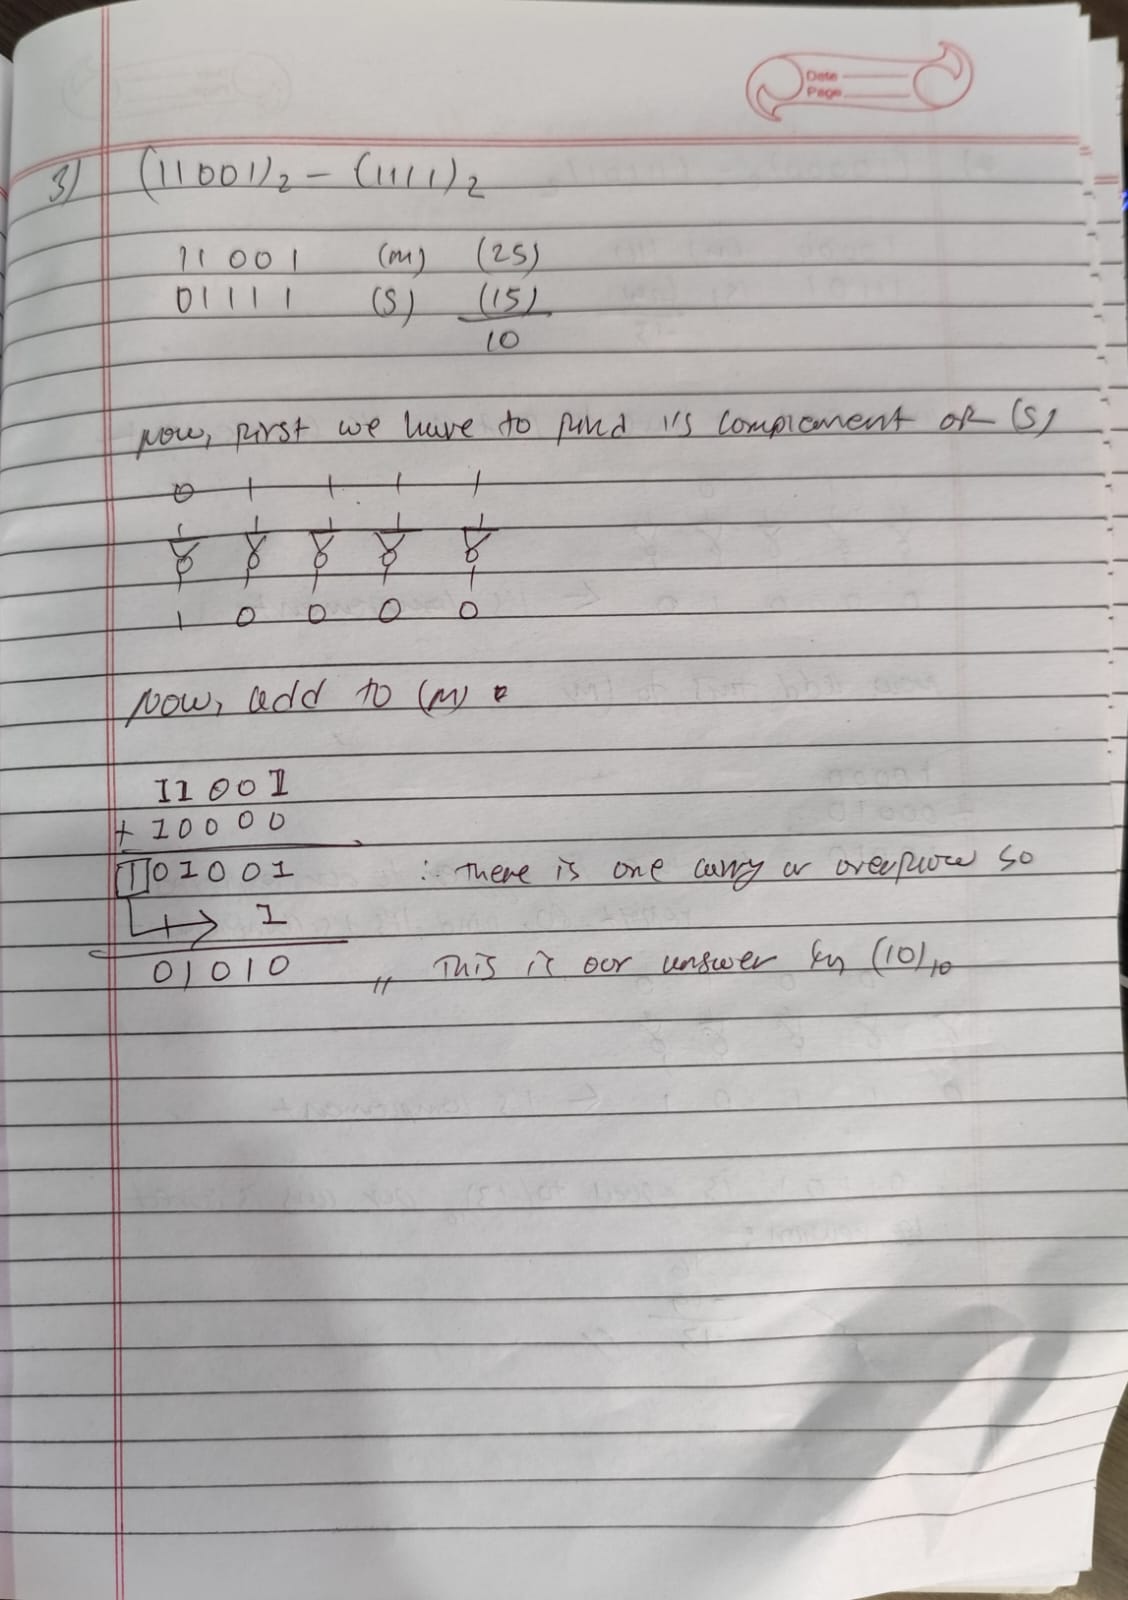 Date
Page
3) (11001)₂ - (1111)₂
11001 (M) (25)
01111 (S) (15)
10
Now, first we have to find 1's complement of (S)
0 1 1 1 1
1 0 0 0 0
Now, add to (M)
11001
+ 10000
101001 : There is one carry or overflow so
1
01010 ,, This is our answer (10)₁₀